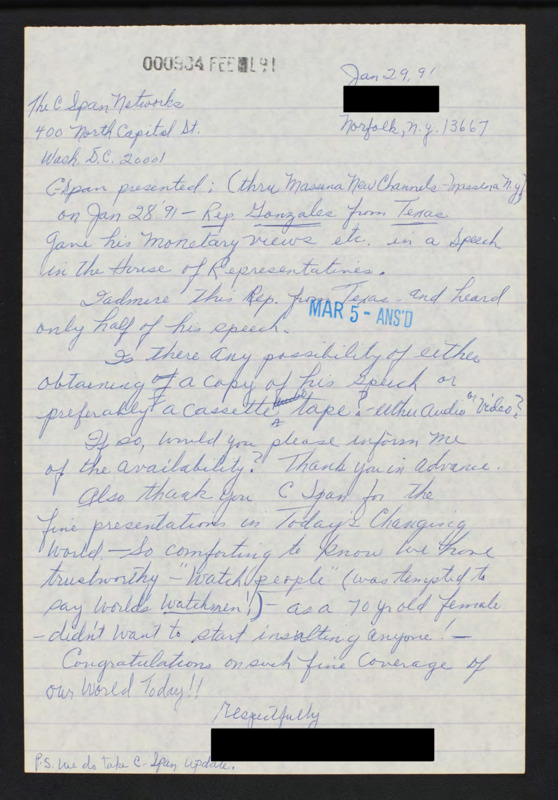 000934 FEB 191
Jan 29, 91
The C Span Networks
Norfolk, N.Y. 13667
400 North Capitol St.
Wash D.C. 20001
C-Span presented: (thru Massena New Channels - Massena N.Y.)
on Jan 28 '91 - Rep. Gonzales from Texas
gave his Monetary views etc. in a Speech
in the House of Representatives.
I admire this Rep. from Texas - and heard
only half of his speech.
MAR 5 - ANS'D
Is there any possibility of either
obtaining a copy of his speech or
preferably a cassette tape? - either audio or Video?
If so, would you please inform me
of the availability? Thank you in advance.
Also thank you C Span for the
fine presentations in Today's Changing
World - So comforting to know we have
trustworthy - "Watch people" (was tempted to
say World's Watchmen!) - as a 70 yr old female
- didn't want to start insulting anyone! -
Congratulations on such fine coverage of
our World Today!!
Respectfully
P.S. We do take C-Span Update.